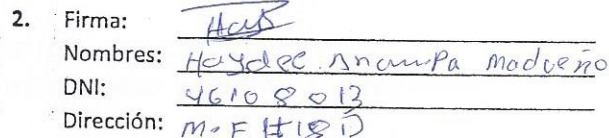 2. Firma:
Nombres: Haydee Anampa Madueño
DNI: 46108013
Dirección: